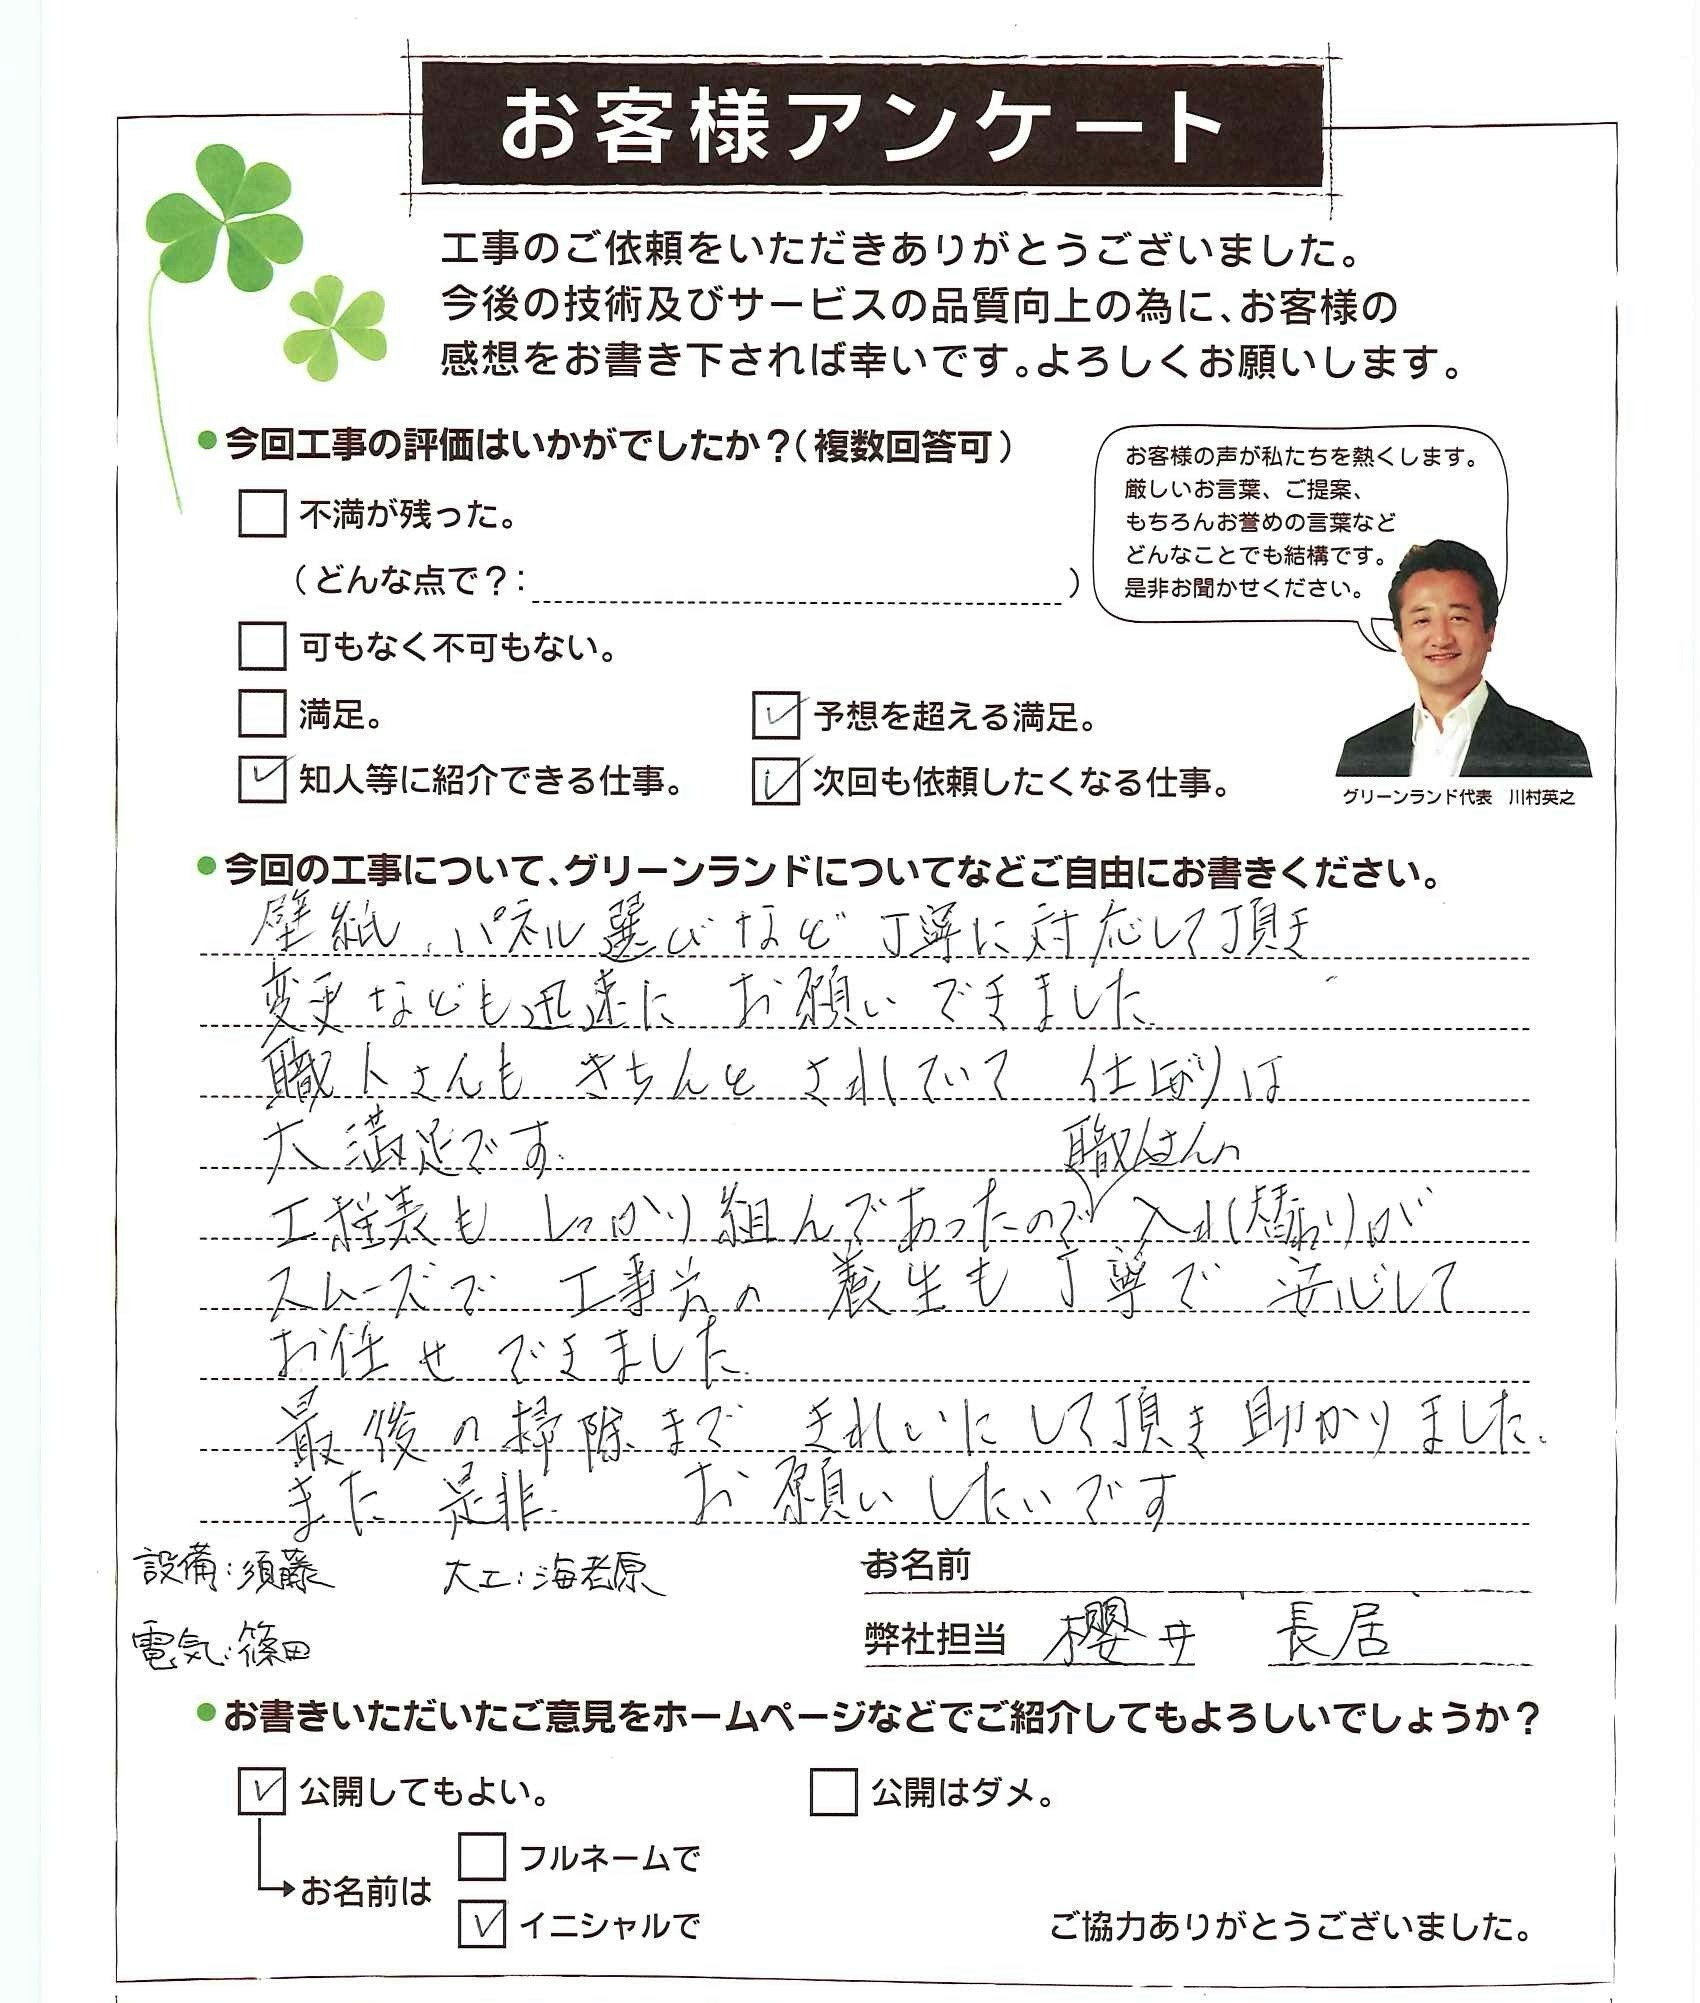 お客様アンケート
工事のご依頼をいただきありがとうございました。
今後の技術及びサービスの品質向上の為に、お客様の
感想をお書き下されば幸いです。よろしくお願いします。
●今回工事の評価はいかがでしたか?(複数回答可)
お客様の声が私たちを熱くします。
厳しいお言葉、ご提案、
もちろんお誉めの言葉など
どんなことでも結構です。
是非お聞かせください。
グリーンランド代表 川村英之
不満が残った。
(どんな点で?: )
可もなく不可もない。
満足。
予想を超える満足。
知人等に紹介できる仕事。
次回も依頼したくなる仕事。
●今回の工事について、グリーンランドについてなどご自由にお書きください。
壁紙、パネル選びなど丁寧に対応して頂き
変更なども迅速に お願いできました
職人さんも きちんと されていて 仕上がりは
大満足です.
工程表も しっかり組んであったので 職人さんの 入れ替わりが
スムーズで 工事前の 養生も丁寧で 安心して
お任せ できました
最後の掃除まで きれいにして頂き助かりました.
また 是非. お願いしたいです
設備:須藤
大工:海老原
電気:篠田
お名前
弊社担当 櫻井 長居
●お書きいただいたご意見をホームページなどでご紹介してもよろしいでしょうか?
公開してもよい。
公開はダメ。
お名前は
フルネームで
イニシャルで
ご協力ありがとうございました。